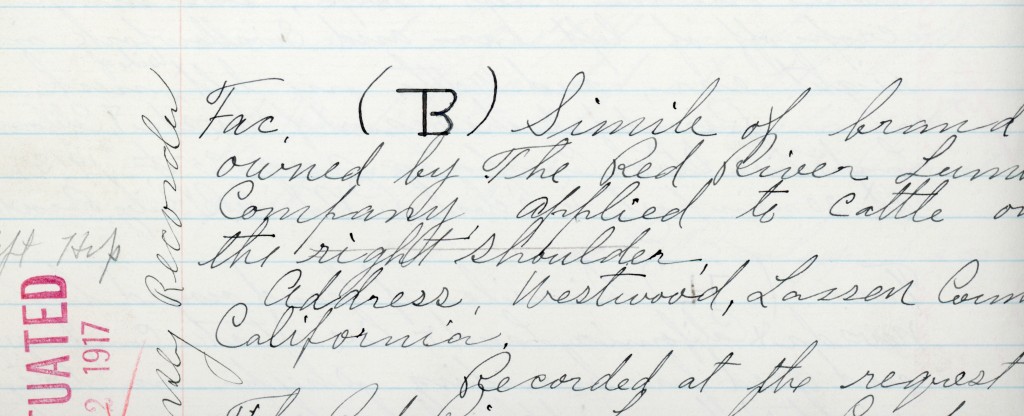 Fac. (TB) Simile of brand
owned by The Red River Lum
Company, applied to cattle on
the right shoulder,
Address, Westwood, Lassen Coun
California.
Recorded at the request
Recorder
ft Hip
TUATED
2 1917